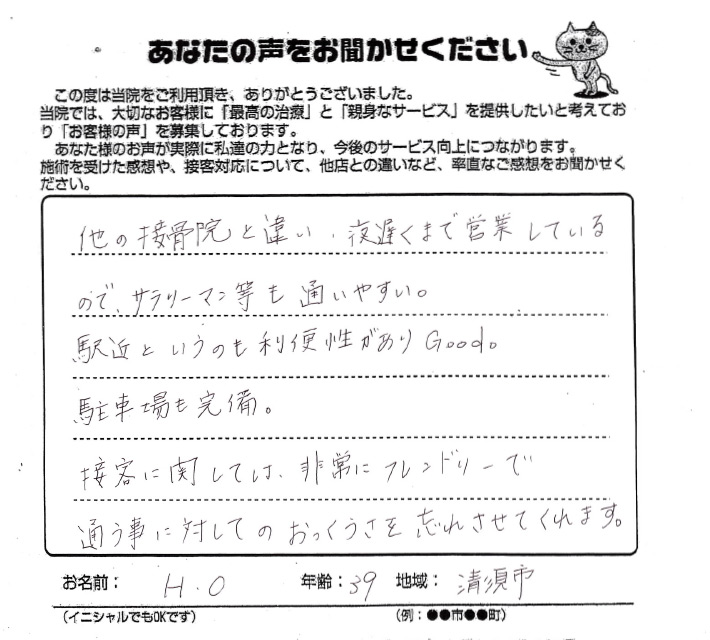 あなたの声をお聞かせください
この度は当院をご利用頂き、ありがとうございました。
当院では、大切なお客様に「最高の治療」と「親身なサービス」を提供したいと考えてお
り「お客様の声」を募集しております。
あなた様のお声が実際に私達の力となり、今後のサービス向上につながります。
施術を受けた感想や、接客対応について、他店との違いなど、率直なご感想をお聞かせく
ださい。
他の接骨院と違い、夜遅くまで営業している
ので、サラリーマン等も通いやすい。
駅近というのも利便性がありGood。
駐車場も完備。
接客に関しては、非常にフレンドリーで
通う事に対してのおっくうさを忘れさせてくれます。
お名前: H.O 年齢:39 地域: 清須市
(イニシャルでもOKです) (例:●●市●●町)